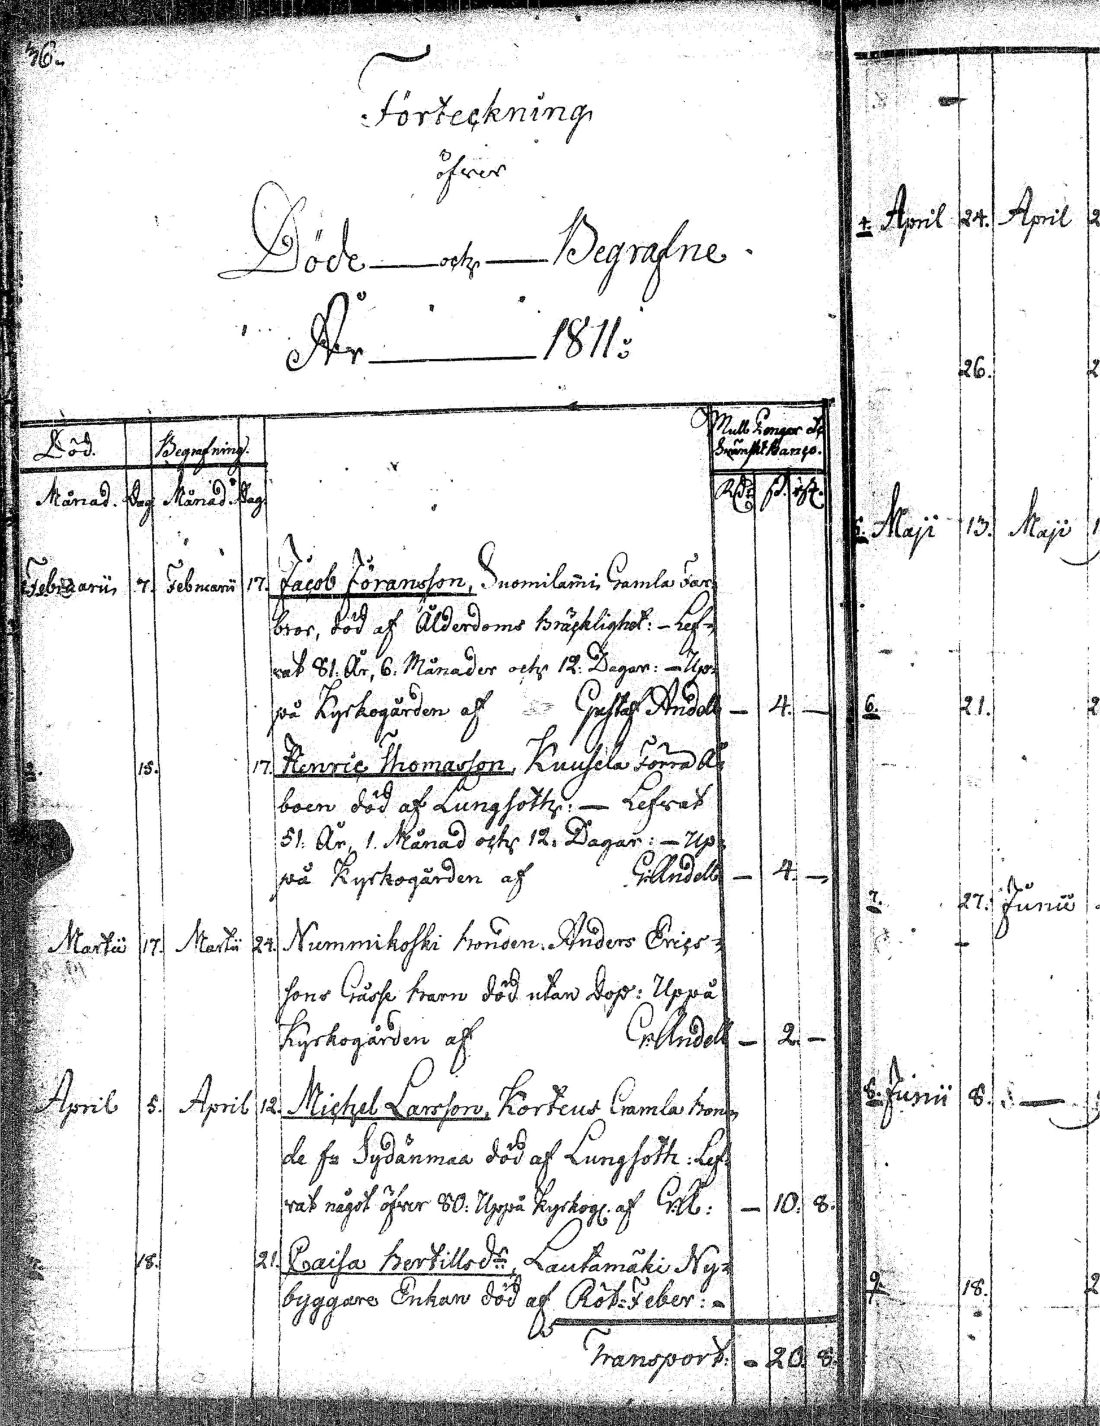 36.
Förteckning
öfver
Döde — och — Begrafne
År — 1811:
Död. Begrafning. Mull Pengar
Svänskt Banco.
Månad. Dag Månad. Dag. Rdr ß. rst.
Februarii 7. Februarii 17. Jacob Jöransson, Suomilam̄i Gamla Far-
bror, död af Ålderdoms bräcklighet: – Lef-
vat 81. År, 6. Månader och 12. Dagar: – Up-
på Kyrkogården af Gustaf Andell — 4. —
2. 15. 17. Henric Thomasson, Kuusela Förra Å-
boen död af Lungsoth: — Lefvat
51. År, 1. Månad och 12. Dagar: – Up-
på Kyrkogården af G: Andell — 4. —
Martii 17. Martii 24. Nummikoski bonden Anders Erics-
sons Gåsse barn död utan dop: Uppå
Kyrkogården af G: Andell — 2. —
April 5. April 12. Michel Larsson, Korteus Gamla bon-
de fr Sydänmaa död af Lungsoth: Lef-
vat något öfver 80: Uppå Kyrkog. af — 10. 8.
18. 21. Caisa Bertillsdr, Lautamäki Ny-
byggare Enkan död af Röt-Feber: –
Transport: – 20. 8.
4. April 24. April 2
26. 2
5. Maji 13. Maji 1
6. 21. 2
7. 27. Junii
8. Junii 8. —
9. 18. 2